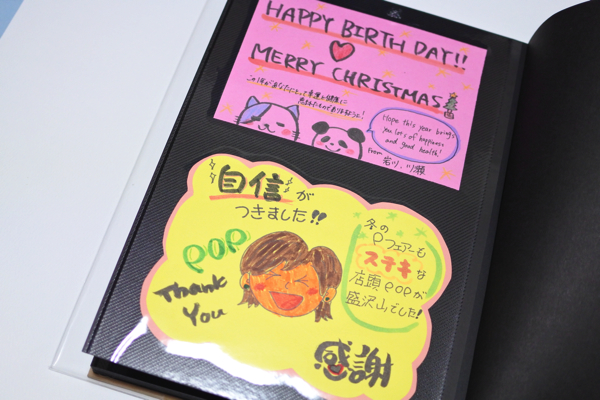 HAPPY BIRTH DAY!!
MERRY CHRISTMAS
この1年があなたにとって幸運と健康に
恵まれたものでありますように!
Hope this year brings
you lots of happiness
and good health!
from 岩ツ、川瀬
自信が
つきました!!
POP
Thank
You
冬の
Pフェアーも
ステキな
店頭POPが
盛沢山でした!
感謝